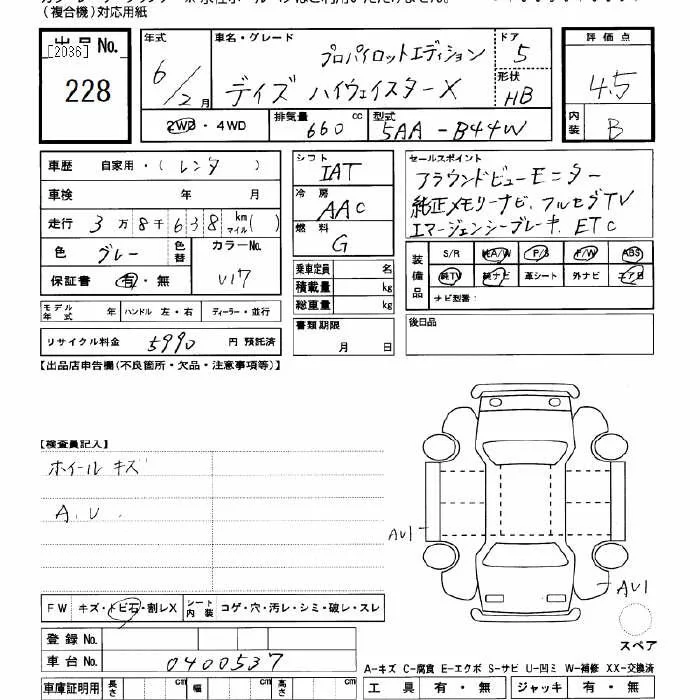 (複合機)対応用紙
出品No. [2036] 228
年式 6/2月
車名・グレード プロパイロットエディション
デイズ ハイウェイスターX
ドア 5
形状 HB
2WD・4WD 排気量 660 cc 型式 5AA-B44W
評価点 4.5
内装 B
車歴 自家用・(レンタ)
車検 年 月
走行 3万8千638 km マイル( )
色 グレー 色替 カラーNo. V17
保証書 有・無
モデル年式 年 ハンドル 左・右 ディーラー・並行
リサイクル料金 5990 円 預託済
シフト IAT
冷房 AAC
燃料 G
乗車定員 名
積載量 kg
総重量 kg
書類期限 月 日
セールスポイント
アラウンドビューモニター
純正メモリーナビ、フルセグTV
エマージェンシーブレーキ、ETC
装備品 S/R 純A/W P/S P/W ABS
純TV 純ナビ 革シート 外ナビ エアB
ナビ型番:
後日品
【出品店申告欄(不良箇所・欠品・注意事項等)】
【検査員記入】
ホイール キズ
A.U.
AU1
AU1
スペア
FW キズ・トビ石・割レX シート内装 コゲ・穴・汚レ・シミ・破レ・スレ
登録No.
車台No. 0400537
車庫証明用 長さ cm 幅 cm 高さ cm
A-キズ C-腐食 E-エクボ S-サビ U-凹ミ W-補修 XX-交換済
工具 有・無 ジャッキ 有・無